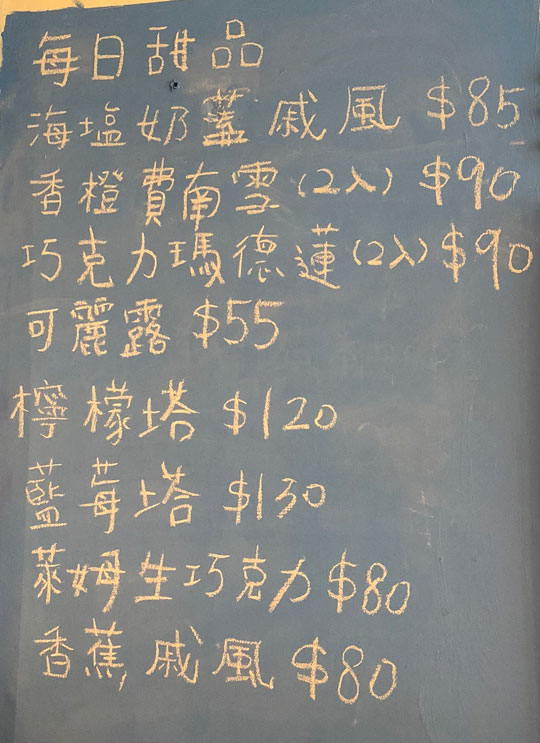 每日甜品
海塩奶蓋戚風 $85
香橙費南雪(2入) $90
巧克力瑪德蓮(2入) $90
可麗露 $55
檸檬塔 $120
藍莓塔 $130
萊姆生巧克力 $80
香蕉戚風 $80